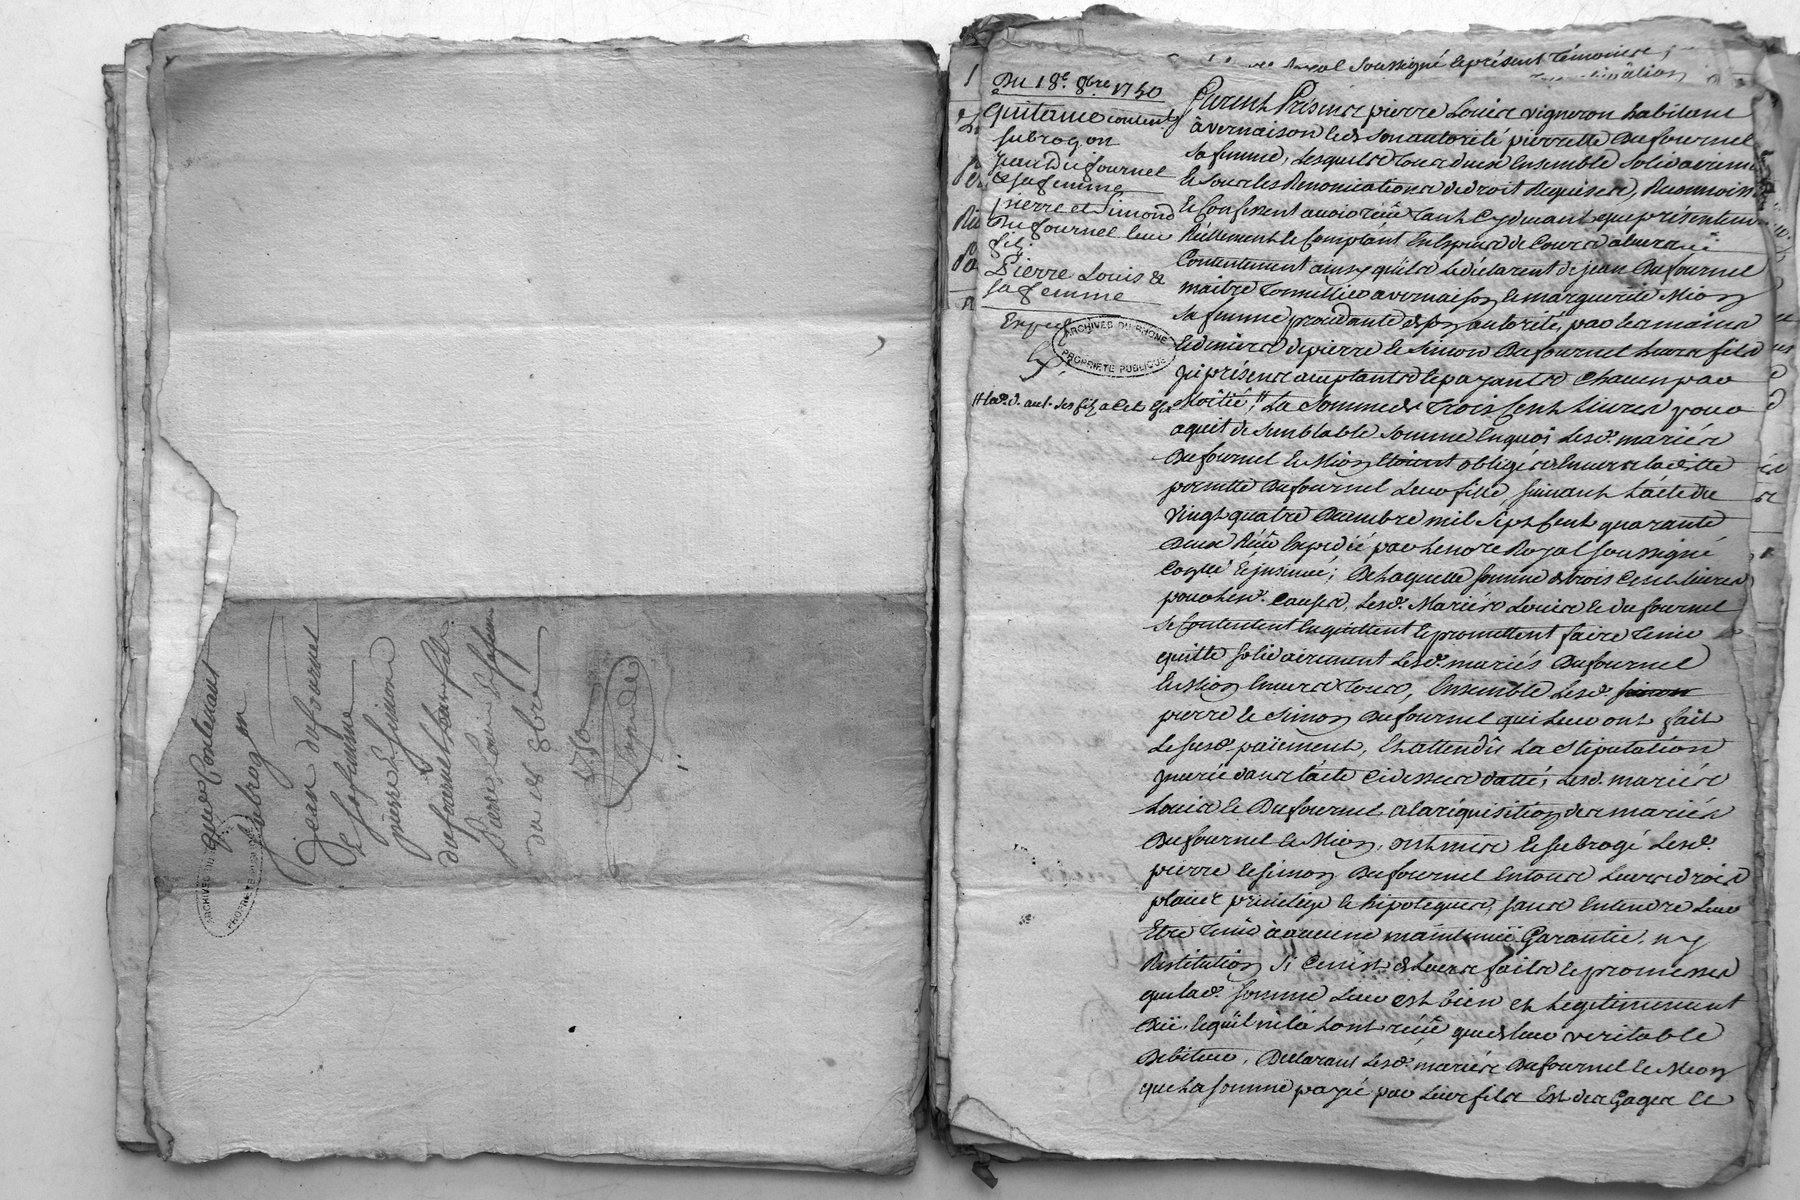 quit.ce Contenant
subrog.on
Jean dufournel
et sa femme
pierre et Simond
dufournel leurs fils
Pierre Louis et sa femme
du 18 8bre
1750
Expedié
ARCHIVES DU RHONE
PROPRIETE PUBLIQUE
Du 18e. 8bre 1750
Quitance content
subrogon
Jean Dufournel
& sa femme
pierre et Simond
Dufournel leur
fils
Pierre Louis &
sa femme
Exped
ARCHIVES DU RHONE
PROPRIETE PUBLIQUE
Royal soussigné et présent témoins
Furent Présents pierre Louis vigneron habitant
à vernaison et de son autorité pierrette Dufournel
sa femme, Lesquels tous deux Ensemble solidairement
et sous les Renonciations de droit Requises, Reconnoiss
et Confessent avoir reçû tant cy devant que présentem
Réellement et Comptant En Especes de Cours a leur
Contentement ainsy qu'ils le déclarent de jean Dufournel
maitre tonnellier a vernaison et marguerite Mion
sa femme procédante de son autorité, par les mains
et deniers de pierre et Simon Dufournel leurs fils
ici présents acceptants et payants Chacun par
Moitié, La Somme de trois Cent Livres pour
aquit de semblable somme En quoi Lesd. mariés
Dufournel et Mion Etoient obligés Envers la ditte
pierrette Dufournel Leur fille, suivant L'acte du
vingt quatre Decembre mil sept Cent quarante
Deux Reçû Et Expedié par Le no.re Royal soussigné
Con.lé et insinué; De Laquelle somme de trois Cent livres
pour Lesd. Causes, Lesd. Mariés Louis et dufournel
se Contentent En quittent et promettent faire tenir
quitte solidairement Lesd. mariés Dufournel
et Mion Envers tous, Ensemble Lesd. simon
pierre et Simon Dufournel qui Leur ont fait
Le susd. païement, Et attendû La stipulation
portée dans l'acte Cidessus datté, Lesd. mariés
Louis et Dufournel, a la réquisition des mariés
Dufournel et Mion, ont mis et subrogé Lesd.
pierre et simon Dufournel En tous Leurs droits
place privilege et hipoteques, sans Entendre Leur
Etre tenûs à aucune maintenuë Garantie, ny
Restitution si Ce n'est de Leurs faits et promesses
que lad. somme Leur est bien et Legitimement
Duë, et qu'il n'en L'ont reçûe que de leur veritable
Debiteur, Declarant Lesd. mariés Dufournel et Mion
que La somme payée par Leurs fils Est des Gages et